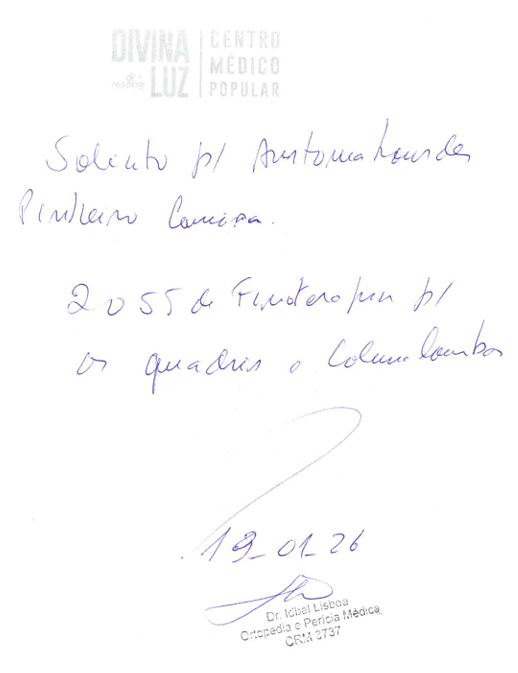 DIVINA LUZ
dr. resolve
CENTRO MÉDICO POPULAR
Solicito p/
Pinheiro
20 SS de Fisioterapia p/
os quadris e Coluna Lombar
19-01-26
Dr. Idbal Lisboa
Ortopedia e Perícia Médica
CRM 3737